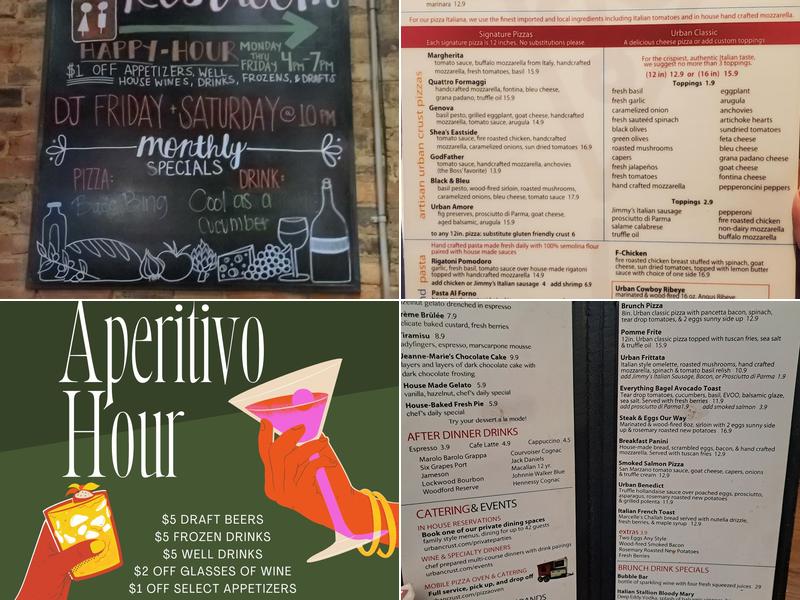 Restroom
HAPPY-HOUR MONDAY
THRU
FRIDAY 4PM-7PM
$1 OFF APPETIZERS, WELL,
HOUSE WINES, DRINKS, FROZENS, & DRAFTS
DJ FRIDAY + SATURDAY @ 10 PM
monthly
SPECIALS
PIZZA: DRINK:
Bada Bing Cool as a
Cucumber
marinara 12.9
For our pizza Italiana, we use the finest imported and local ingredients including Italian tomatoes and in house hand crafted mozzarella.
Signature Pizzas
Each signature pizza is 12 inches. No substitutions please.
artisan urban crust pizzas
Margherita
tomato sauce, buffalo mozzarella from Italy, handcrafted
mozzarella, fresh tomatoes, basil 15.9
Quattro Formaggi
handcrafted mozzarella, fontina, bleu cheese,
grana padano, truffle oil 15.9
Genova
basil pesto, grilled eggplant, goat cheese, handcrafted
mozzarella, tomato sauce, arugula 14.9
Shea's Eastside
tomato sauce, fire roasted chicken, handcrafted
mozzarella, caramelized onions, sun dried tomatoes 16.9
GodFather
tomato sauce, handcrafted mozzarella, anchovies
(the Boss' favorite) 13.9
Black & Bleu
basil pesto, wood-fired sirloin, roasted mushrooms,
caramelized onions, bleu cheese, tomato sauce 17.9
Urban Amore
fig preserves, prosciutto di Parma, goat cheese,
aged balsamic, arugula 15.9
to any 12in. pizza: substitute gluten friendly crust 6
Hand crafted pasta made fresh daily with 100% semolina flour
paired with house made sauces
pasta
Rigatoni Pomodoro
garlic, fresh basil, tomato sauce over house made rigatoni
topped with handcrafted mozzarella 14.9
add chicken or Jimmy's Italian sausage 4 add shrimp 6.9
Pasta Al Forno
Urban Classic
A delicious cheese pizza or add custom toppings
For the crispiest, authentic Italian taste,
we suggest no more than 3 toppings.
(12 in) 12.9 or (16 in) 15.9
Toppings 1.9
fresh basil eggplant
fresh garlic arugula
caramelized onion anchovies
fresh sauteed spinach artichoke hearts
black olives sundried tomatoes
green olives feta cheese
roasted mushrooms bleu cheese
capers grana padano cheese
fresh jalapeños goat cheese
fresh tomatoes fontina cheese
hand crafted mozzarella pepperoncini peppers
Toppings 2.9
Jimmy's Italian sausage pepperoni
prosciutto di Parma fire roasted chicken
salame calabrese non-dairy mozzarella
truffle oil buffalo mozzarella
F-Chicken
fire roasted chicken breast stuffed with spinach, goat
cheese, sun dried tomatoes, topped with lemon butter
sauce with choice of one side 16.9
Urban Cowboy Ribeye
marinated & wood-fired 16 oz. Angus Ribeye
Aperitivo
Hour
$5 DRAFT BEERS
$5 FROZEN DRINKS
$5 WELL DRINKS
$2 OFF GLASSES OF WINE
$1 OFF SELECT APPETIZERS
gelato drenched in espresso
Crème Brûlée 7.9
delicate baked custard, fresh berries
Tiramisu 8.9
ladyfingers, espresso, marscarpone mousse
Jeanne-Marie's Chocolate Cake 9.9
layers and layers of dark chocolate cake with
dark chocolate frosting
House Made Gelato 5.9
vanilla, hazelnut, chef's daily special
House-Baked Fresh Pie 5.9
chef's daily special
Try your dessert a la mode!
AFTER DINNER DRINKS
Espresso 3.9 Cafe Latte 4.9 Cappuccino 4.5
Marolo Barolo Grappa Courvoiser Cognac
Six Grapes Port Jack Daniels
Jameson Macallan 12 yr.
Lockwood Bourbon Johnnie Walker Blue
Woodford Reserve Hennessy Cognac
CATERING & EVENTS
IN HOUSE RESERVATIONS
Book one of our private dining spaces
family style menus, dining for up to 42 guests
urbancrust.com/privateparties
WINE & SPECIALTY DINNERS
chef prepared multi-course dinners with drink pairings
urbancrust.com/events
MOBILE PIZZA OVEN & CATERING
Full service, pick up, and drop off
urbancrust.com/pizzaoven
Brunch Pizza
8in. Urban classic pizza with pancetta bacon, spinach,
tear drop tomatoes, & 2 eggs sunny side up 12.9
Pomme Frite
12in. Urban classic pizza topped with tuscan fries, sea salt
& truffle oil 15.9
Urban Frittata
Italian style omelette, roasted mushrooms, hand crafted
mozzarella, spinach & tomato basil relish 10.9
add Jimmy's Italian Sausage, Bacon, or Prosciutto di Parma 1.9
Everything Bagel Avocado Toast
Tear drop tomatoes, cucumbers, basil, EVOO, balsamic glaze,
sea salt. Served with fresh berries 11.9
add prosciutto di Parma 1.9 add smoked salmon 3.9
Steak & Eggs Our Way
Marinated & wood-fired 8oz. sirloin with 2 eggs sunny side
up & rosemary roasted new potatoes 16.9
Breakfast Panini
House-made bread, scrambled eggs, bacon, & hand crafted
mozzarella. Served with tuscan fries 12.9
Smoked Salmon Pizza
San Marzano tomato sauce, goat cheese, capers, onions
& truffle cream 12.9
Urban Benedict
Truffle hollandaise sauce over poached eggs, prosciutto,
asparagus, rosemary roasted new potatoes
& grilled polenta 11.9
Italian French Toast
Marcelle's Challah bread served with nutella drizzle,
fresh berries, & maple syrup 12.9
extras 3.9
Two Eggs Any Style
Wood-fired Smoked Bacon
Rosemary Roasted New Potatoes
Fresh Berries
BRUNCH DRINK SPECIALS
Bubble Bar
bottle of sparkling wine with four fresh squeezed juices 29
Italian Stallion Bloody Mary